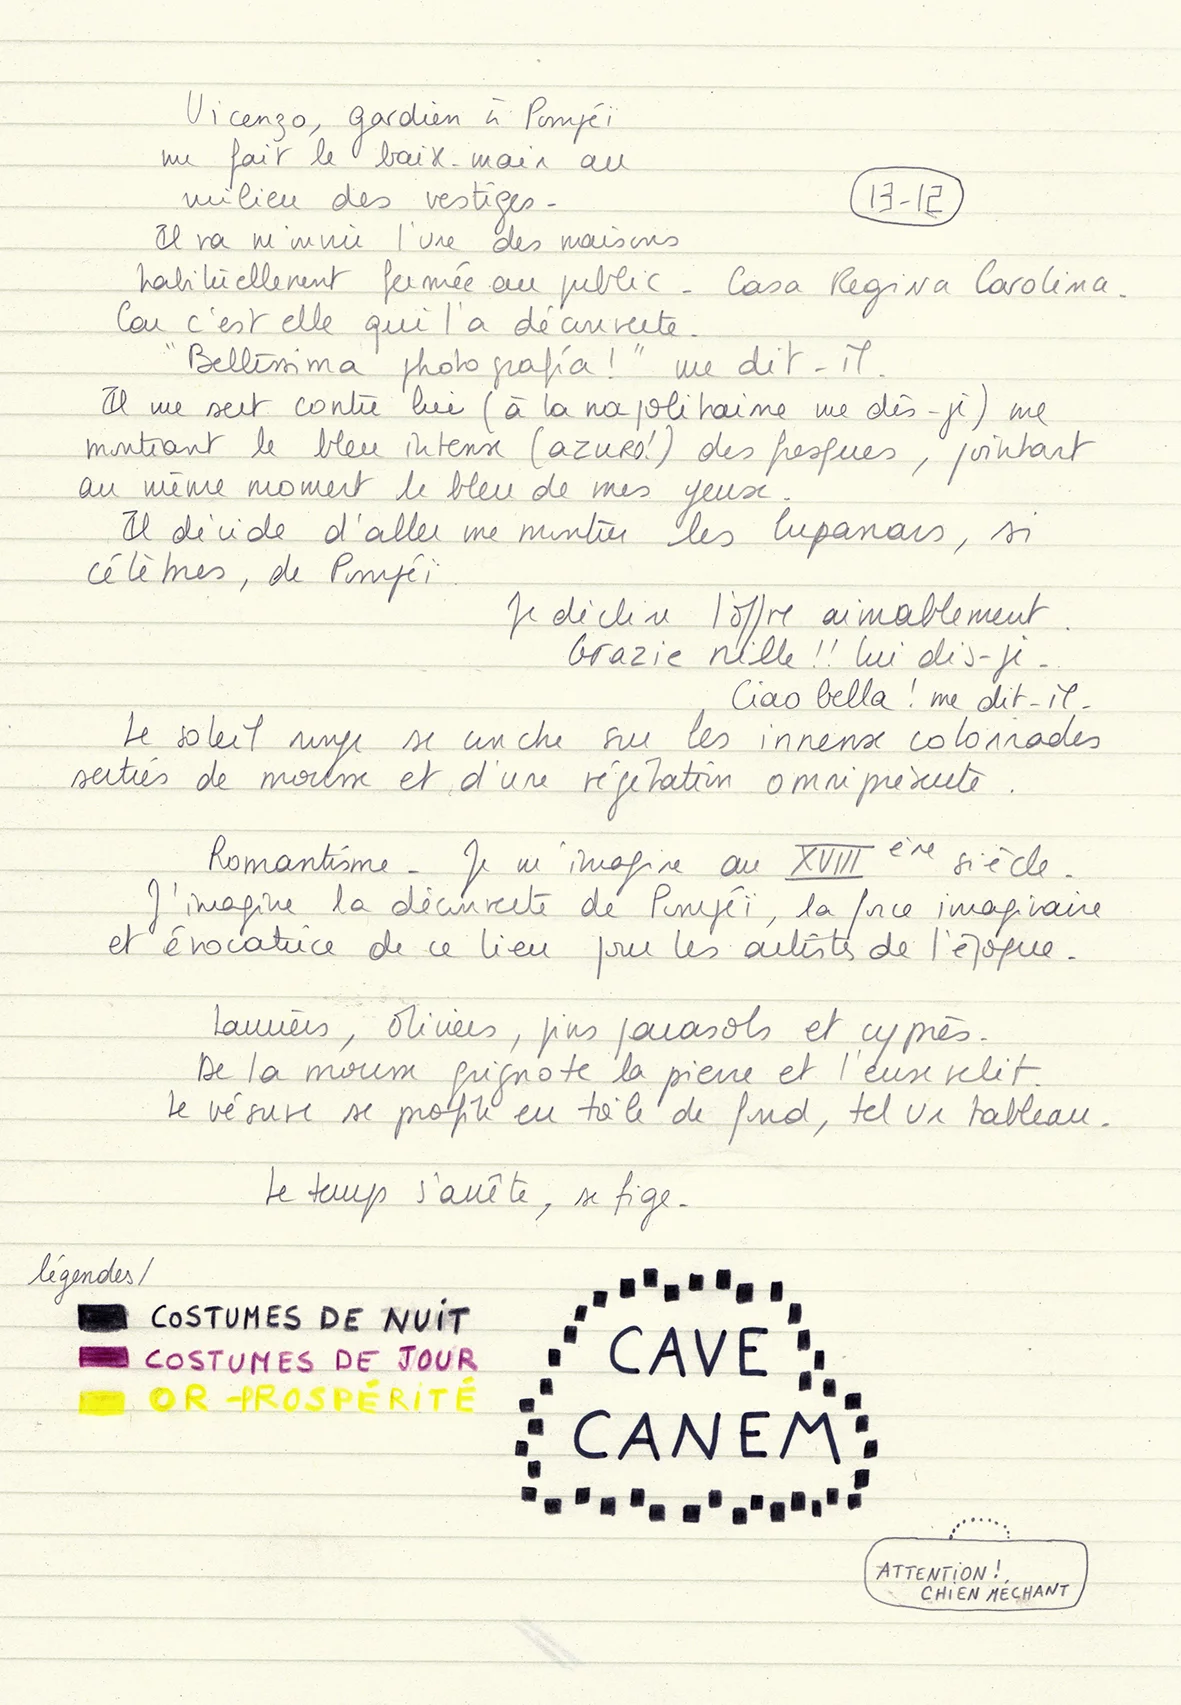 Vicenzo, gardien à Pompéï
me fait le baix-main au
milieu des vestiges -
13-12
Il va m'ouvrir l'une des maisons
habituellement fermée au public - Casa Regina Carolina.
Car c'est elle qui l'a découverte.
"Bellissima photografia!" me dit-il.
Il me sert contre lui (à la napolitaine me dis-je) me
montrant le bleu intense (azuro!) des fresques, pointant
au même moment le bleu de mes yeux.
Il décide d'aller me montrer les lupanars, si
célèbres, de Pompéï.
Je décline l'offre aimablement.
Grazie mille!! lui dis-je -
Ciao bella! me dit-il.
Le soleil rouge se couche sur les immense colonnades
sertiés de mousse et d'une végétation omniprésente.
Romantisme - Je m'imagine au XVIII ème siècle.
J'imagine la découverte de Pompéï, la force imaginaire
et évocatrice de ce lieu pour les artistes de l'époque.
Lauriers, Oliviers, pins parasols et cyprès.
De la mousse grignote la pierre et l'ensevelit.
Le vésuve se profile en toile de fond, tel un tableau.
Le temps s'arrête, se fige.
légendes/
COSTUMES DE NUIT
COSTUMES DE JOUR
OR - PROSPÉRITÉ
CAVE
CANEM
ATTENTION!
CHIEN MÉCHANT